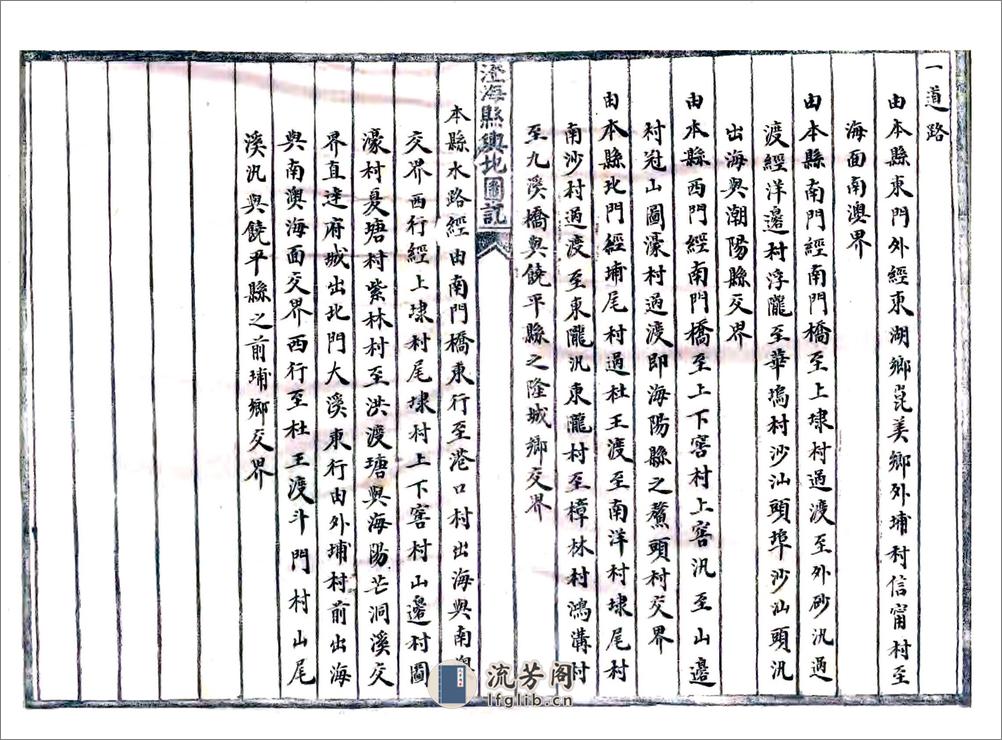 一道路
由本縣東門外經東湖鄉崑美鄉外埔村信甯村至
海面南澳界
由本縣南門經南門橋至上埭村過渡至外砂汛過
渡經洋邊村浮隴至華塢村沙汕頭埠沙汕頭汛
出海與潮陽縣交界
由本縣西門經南門橋至上下窖村上窖汛至山邊
村冠山圖濠村過渡即海陽縣之鰲頭村交界
由本縣北門經埔尾村過杜王渡至南洋村埭尾村
南沙村過渡至東隴汛東隴村至樟林村鴻溝村
至九溪橋與饒平縣之隆城鄉交界
澄海縣輿地圖說
本縣水路經由南門橋東行至港口村出海與南澳
交界西行經上埭村尾埭村上下窖村山邊村圖
濠村夏塘村紫林村至洪渡塘與海陽芒洞溪交
界直達府城出北門大溪東行由外埔村前出海
與南澳海面交界西行至杜王渡斗門村山尾
溪汛與饒平縣之前埔鄉交界
流芳阁
lfglib.cn